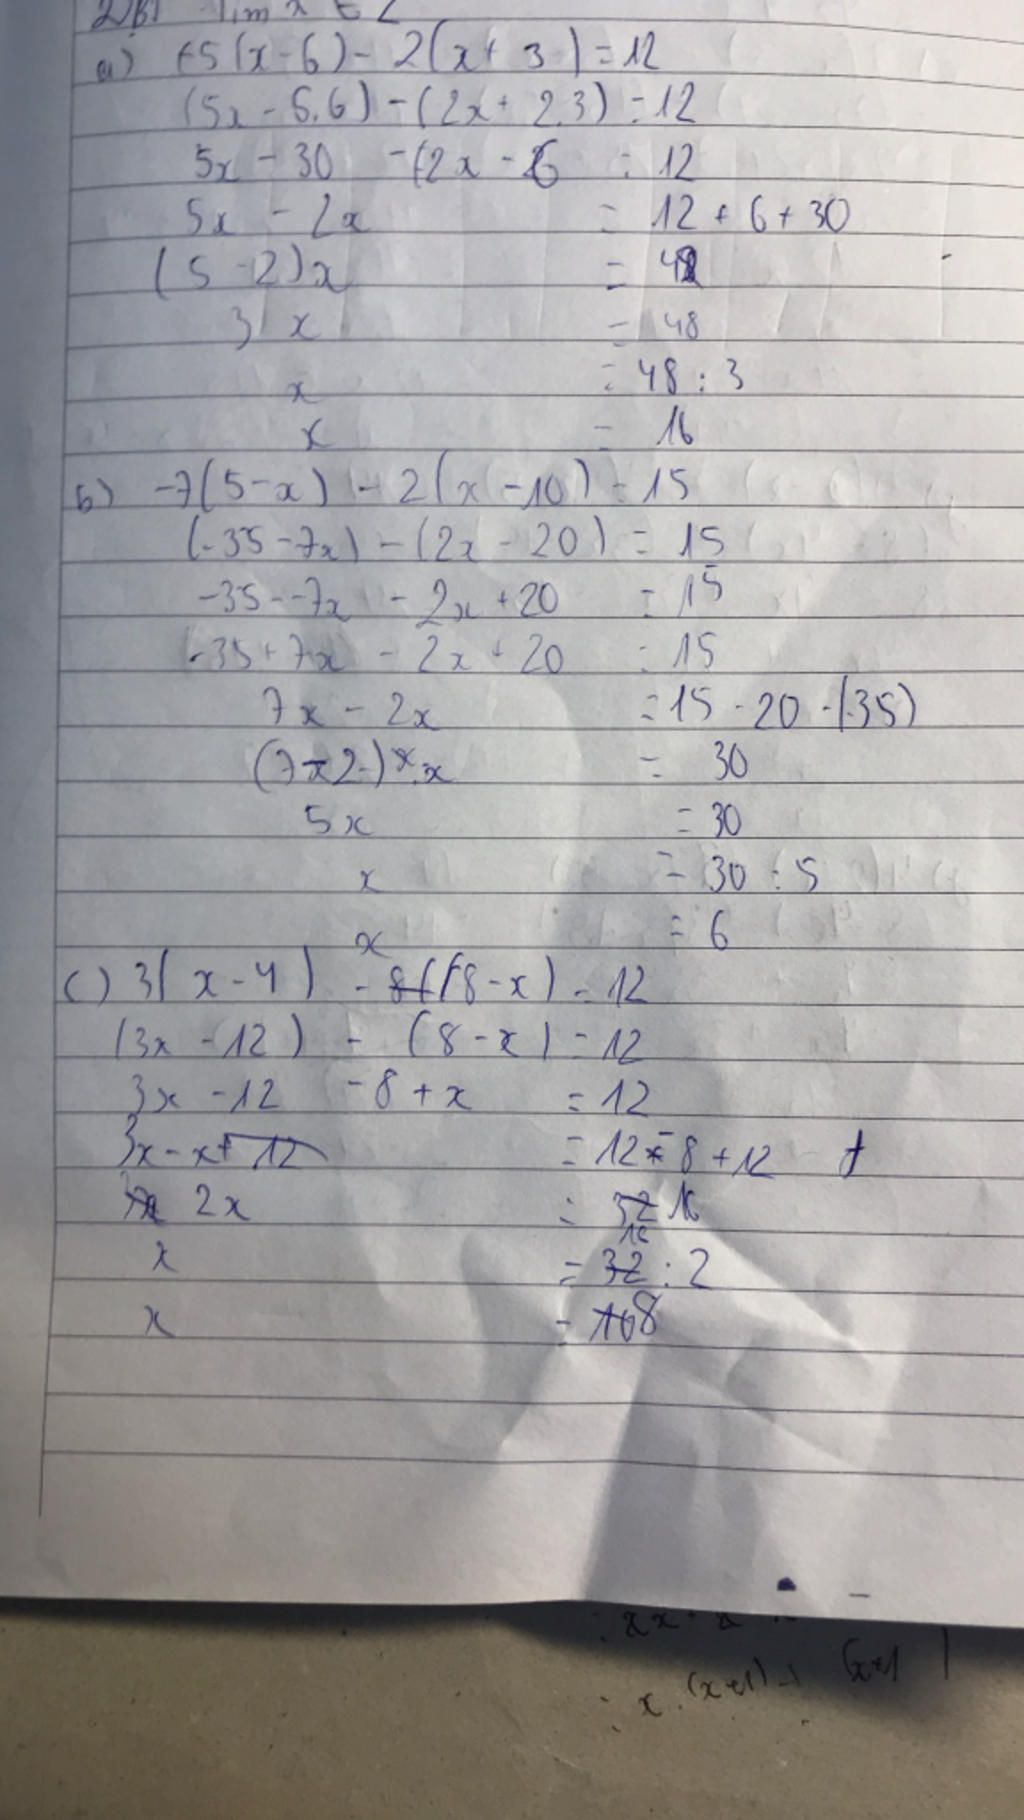 a) +5(x-6) - 2(x+3) = 12
(5x - 5.6) - (2x + 2.3) = 12
5x - 30 - (2x - 6 = 12
5x - 2x = 12 + 6 + 30
(5 - 2)x = 48
3 x = 48
x = 48 : 3
x = 16
b) -7(5-x) - 2(x-10) = 15
(-35-7x) - (2x - 20) = 15
-35--7x - 2x + 20 = 15
-35+7x - 2x + 20 = 15
7x - 2x = 15 - 20 - (-35)
(7-2) x = 30
5x = 30
x = 30 : 5
x = 6
c) 3(x-4) - (8-x) = 12
(3x - 12) - (8-x) = 12
3x - 12 - 8 + x = 12
3x - x = 12 - 8 + 12
2x = 16
x = 16 : 2
x = 8